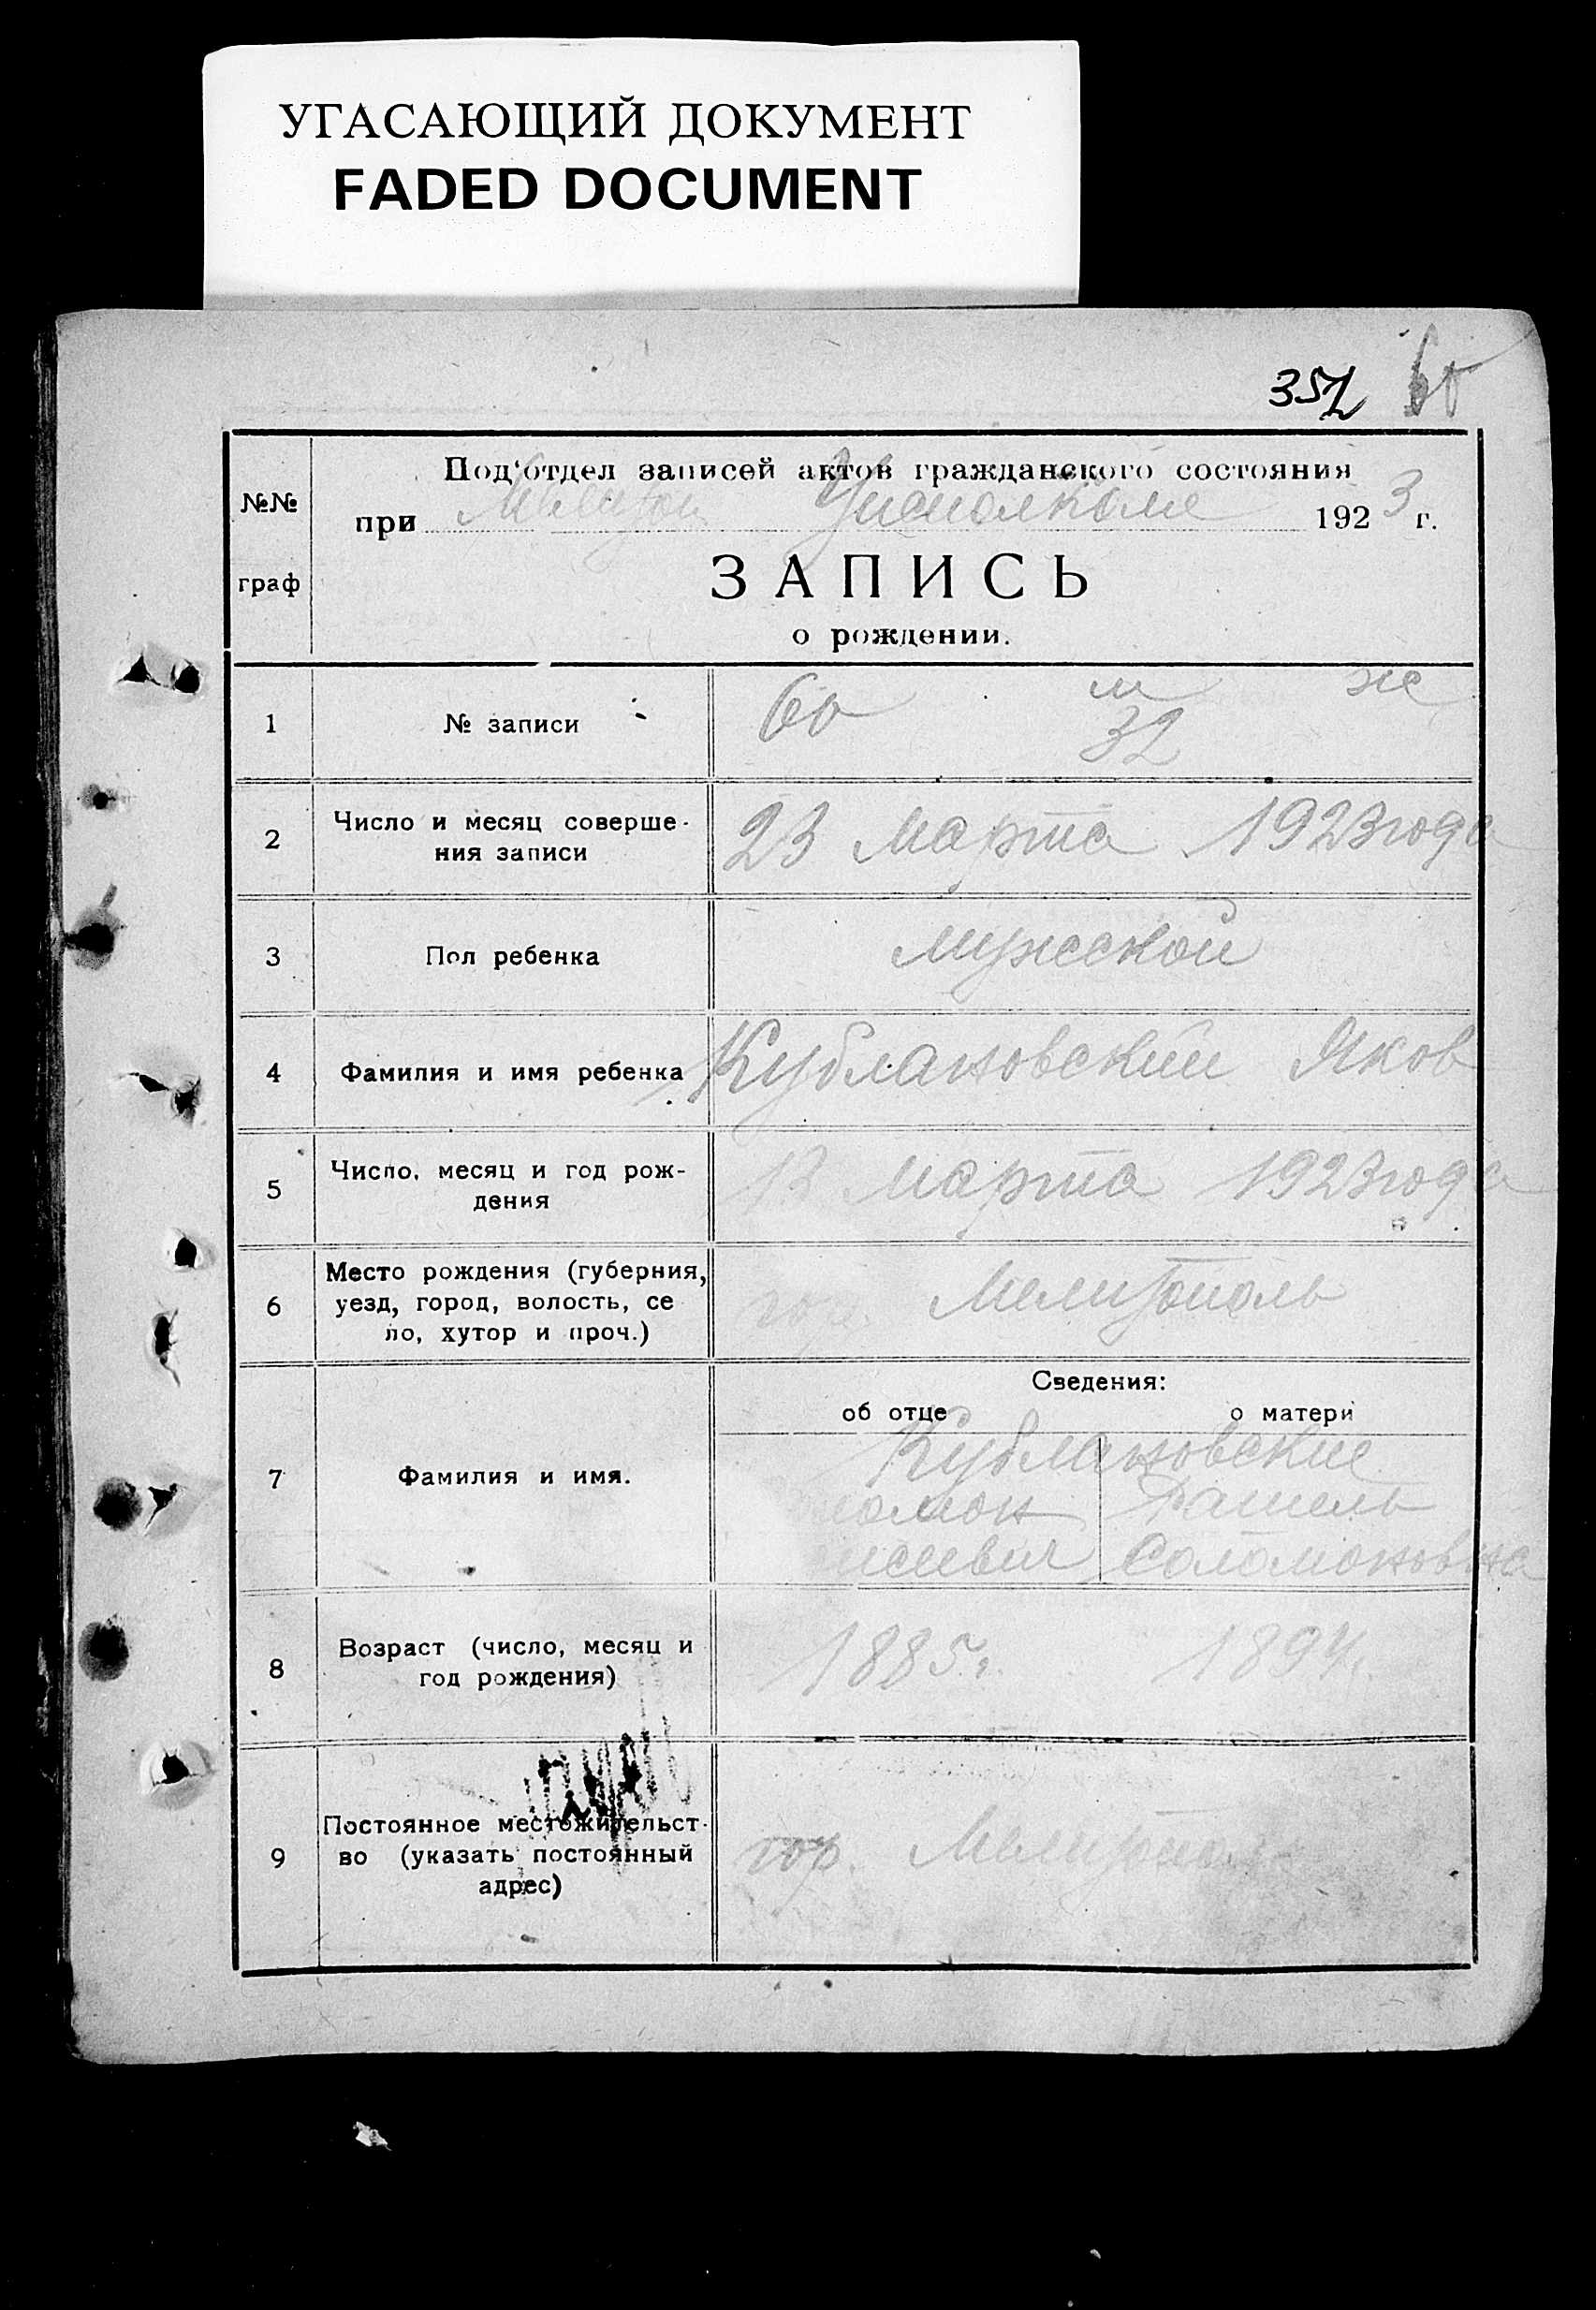 УГАСАЮЩИЙ ДОКУМЕНТ
FADED DOCUMENT
352 60
№№ граф
Под'отдел записей актов гражданского состояния
при Мелитоп Уисполкоме 1923 г.
ЗАПИСЬ
о рождении.
1 № записи 60 м ж
32
2 Число и месяц соверше-
ния записи 23 марта 1923 года
3 Пол ребенка мужской
4 Фамилия и имя ребенка Кублановский Яков
5 Число, месяц и год рож-
дения марта 1923 года
6 Место рождения (губерния,
уезд, город, волость, се
ло, хутор и проч.) гор. Мелитополь
Сведения:
об отце о матери
7 Фамилия и имя. Кублановские
ломон Рашель
исеевич Соломоновна
8 Возраст (число, месяц и
год рождения) 1885 г. 1894 г.
9 Постоянное местожительст-
во (указать постоянный
адрес) гор. Мелитополь